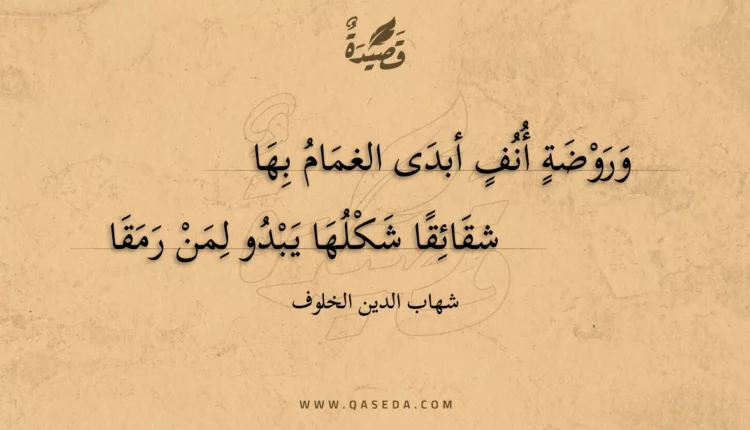 قَصِيْدَةٌ
وَرَوْضَةٍ أُنُفٍ أبدَى الغمَامُ بِهَا
شقَائِقًا شَكْلُهَا يَبْدُو لِمَنْ رَمَقَا
شهاب الدين الخلوف
WWW.QASEDA.COM